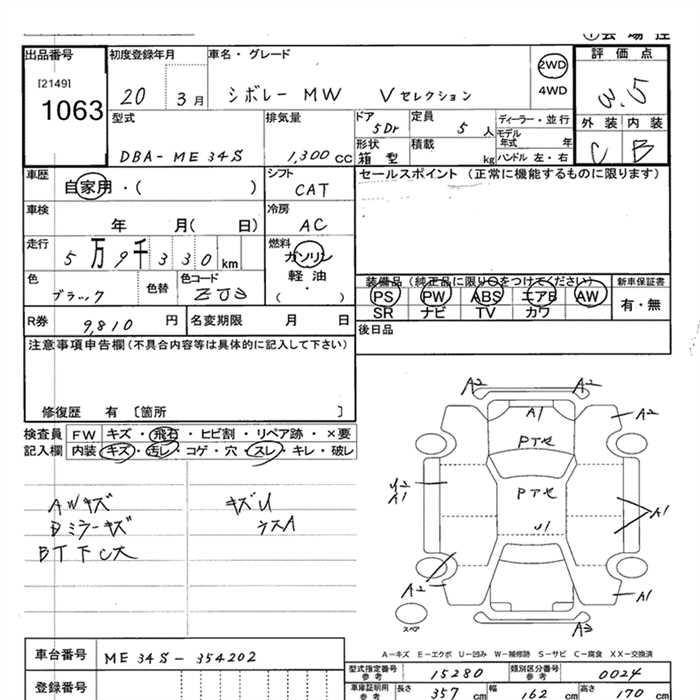 ①会場控
出品番号 [2149] 1063
初度登録年月 20 3月
車名・グレード シボレー MW Vセレクション
2WD
4WD
評価点 3.5
外装 C 内装 B
型式 DBA-ME34S
排気量 1,300 CC
ドア 5Dr
形状 箱型
定員 5人
積載 kg
ディーラー・並行
モデル年式 年
ハンドル 左・右
車歴 自家用・( )
シフト CAT
セールスポイント (正常に機能するものに限ります)
車検 年 月( 日)
冷房 AC
走行 5万9千330km
燃料 ガソリン
軽油
・
( )
色 ブラック
色替
色コード ZJ3
装備品(純正品に限り○をつけてください)
PS PW ABS エアB AW
SR ナビ TV カワ
新車保証書
有・無
R券 9,810円
名変期限 月 日
後日品
注意事項申告欄(不具合内容等は具体的に記入して下さい)
修復歴 有 〔箇所 〕
検査員 FW キズ・飛石・ヒビ割・リペア跡・×要
記入欄 内装 キズ・汚レ・コゲ・穴・スレ・キレ・破レ
AWキズ
Dミラーキズ
BT下C大
キズU
ウスA
A2 A2
A1 A2
Pアセ
U2
A1
Pアセ
A1
U1
A2
A1
A3
スペア
A—キズ E—エクボ U—凹み W—補修跡 S—サビ C—腐食 XX—交換済
車台番号 ME34S-354202
登録番号
型式指定番号 参考 15280
類別区分番号 参考 0024
車庫証明用 参考
長さ 357 cm
幅 162 cm
高さ 170 cm